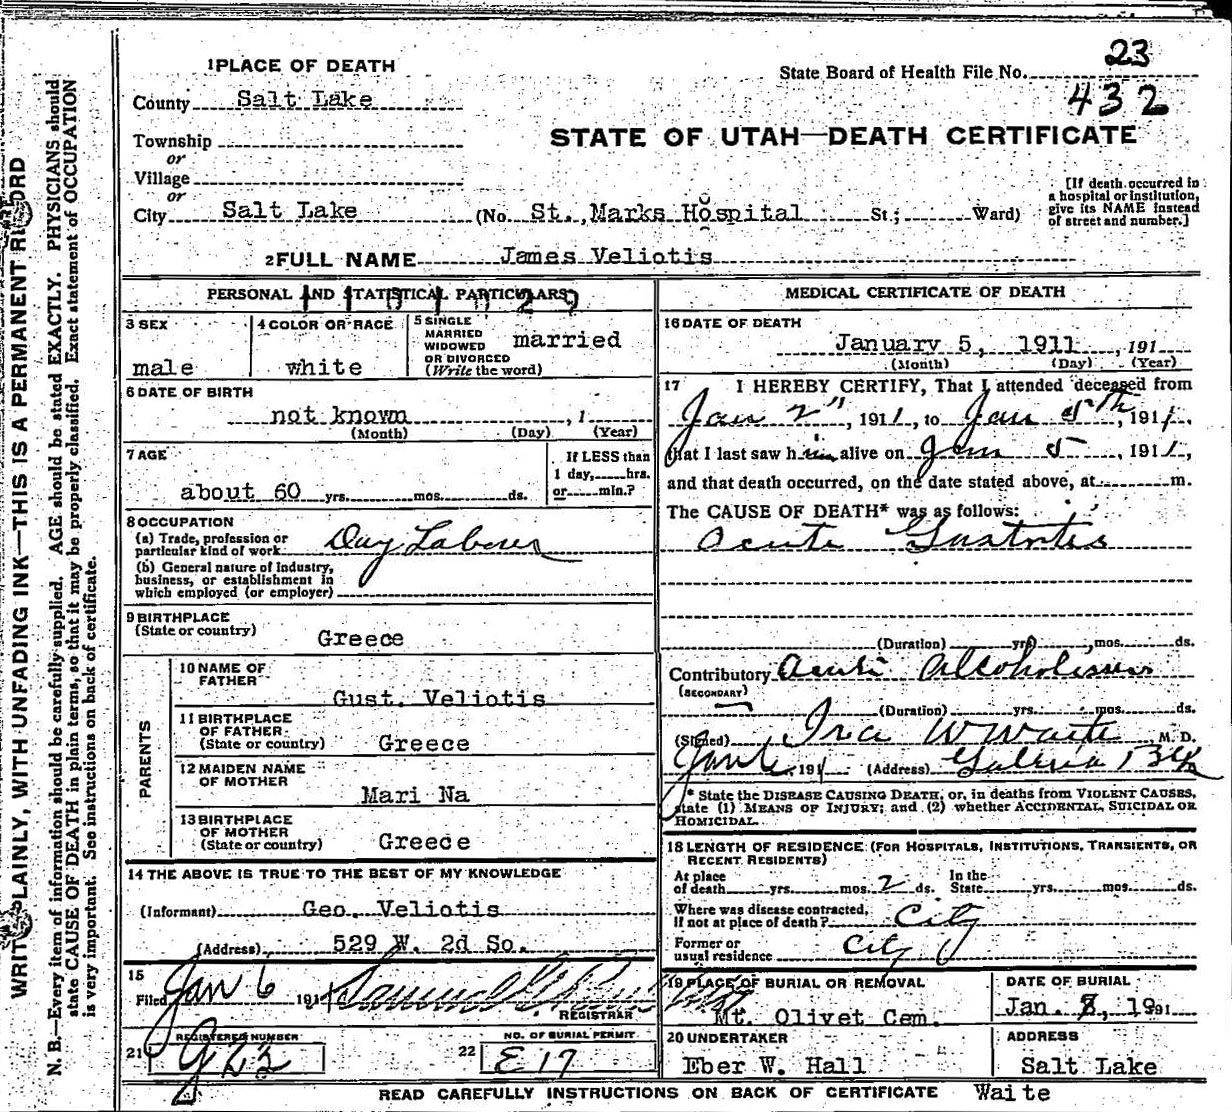 23
State Board of Health File No.
432
1 PLACE OF DEATH
County Salt Lake
STATE OF UTAH—DEATH CERTIFICATE
Township
or
Village
or
City Salt Lake (No. St., Marks Hospital St; Ward)
[If death occurred in a hospital or institution, give its NAME instead of street and number.]
2 FULL NAME James Veliotis
PERSONAL AND STATISTICAL PARTICULARS
3 SEX
male
4 COLOR OR RACE
white
5 SINGLE
MARRIED
WIDOWED
OR DIVORCED
(Write the word)
married
6 DATE OF BIRTH
not known , 1
(Month) (Day) (Year)
7 AGE
about 60 yrs. mos. ds.
If LESS than
1 day, hrs.
or min.?
8 OCCUPATION
(a) Trade, profession or
particular kind of work Day Laborer
(b) General nature of Industry,
business, or establishment in
which employed (or employer)
9 BIRTHPLACE
(State or country)
Greece
PARENTS
10 NAME OF
FATHER
Gust. Veliotis
11 BIRTHPLACE
OF FATHER
(State or country) Greece
12 MAIDEN NAME
OF MOTHER
Mari Na
13 BIRTHPLACE
OF MOTHER
(State or country) Greece
14 THE ABOVE IS TRUE TO THE BEST OF MY KNOWLEDGE
(Informant) Geo. Veliotis
(Address) 529 W. 2d So.
15
Filed Jan 6 191
REGISTRAR
21 REGISTERED NUMBER
22 NO. OF BURIAL PERMIT
E 17
MEDICAL CERTIFICATE OF DEATH
16 DATE OF DEATH
January 5, 1911 , 191
(Month) (Day) (Year)
17 I HEREBY CERTIFY, That I attended deceased from
Jan 2", 1911, to Jan 5th, 1911.
that I last saw him alive on Jan 5, 1911,
and that death occurred, on the date stated above, at m.
The CAUSE OF DEATH* was as follows:
Acute Gastritis
(Duration) yrs. mos. ds.
Contributory Acute Alcoholismus
(SECONDARY)
(Duration) yrs. mos. ds.
(Signed) Ira W Waite M. D.
Jan 6, 191 (Address) Galena Blk
* State the DISEASE CAUSING DEATH, or, in deaths from VIOLENT CAUSES,
state (1) MEANS OF INJURY; and (2) whether ACCIDENTAL, SUICIDAL OR
HOMICIDAL.
18 LENGTH OF RESIDENCE (FOR HOSPITALS, INSTITUTIONS, TRANSIENTS, OR
RECENT RESIDENTS)
At place
of death yrs. mos. 2 ds. In the
State yrs. mos. ds.
Where was disease contracted,
if not at place of death? City
Former or
usual residence City
19 PLACE OF BURIAL OR REMOVAL
Mt. Olivet Cem.
DATE OF BURIAL
Jan. 8, 19 191
20 UNDERTAKER
Eber W. Hall
ADDRESS
Salt Lake
READ CAREFULLY INSTRUCTIONS ON BACK OF CERTIFICATE Waite
WRITE PLAINLY, WITH UNFADING INK—THIS IS A PERMANENT RECORD
N. B.—Every item of information should be carefully supplied. AGE should be stated EXACTLY. PHYSICIANS should
state CAUSE OF DEATH in plain terms, so that it may be properly classified. Exact statement of OCCUPATION
is very important. See instructions on back of certificate.